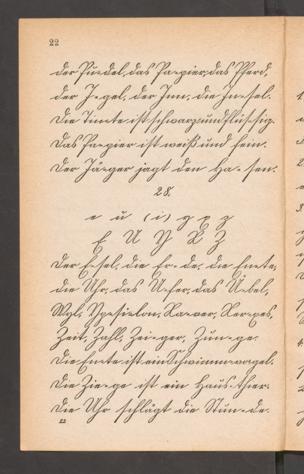 22
der Pu-del, das Pa-pier, das Pferd,
der I-gel, der Inn, die In-sel.
Die Tinte ist schwarz und flüs-sig.
Das Pa-pier ist weiß und fein.
Der Jä-ger jagt den Ha-sen.
28.
e ü (i) y x z
E U Y X Z
Der E-sel, die Er-de, die Ente,
die Uhr, das U-fer, das Ue-bel,
Ypsilon, Xaver, Xerxes,
Zeit, Zahl, Zei-ger, Zun-ge.
Die Ente ist ein Schwimmvogel.
Die Zie-ge ist ein Haus-thier.
Die Uhr schlägt die Stun-de.